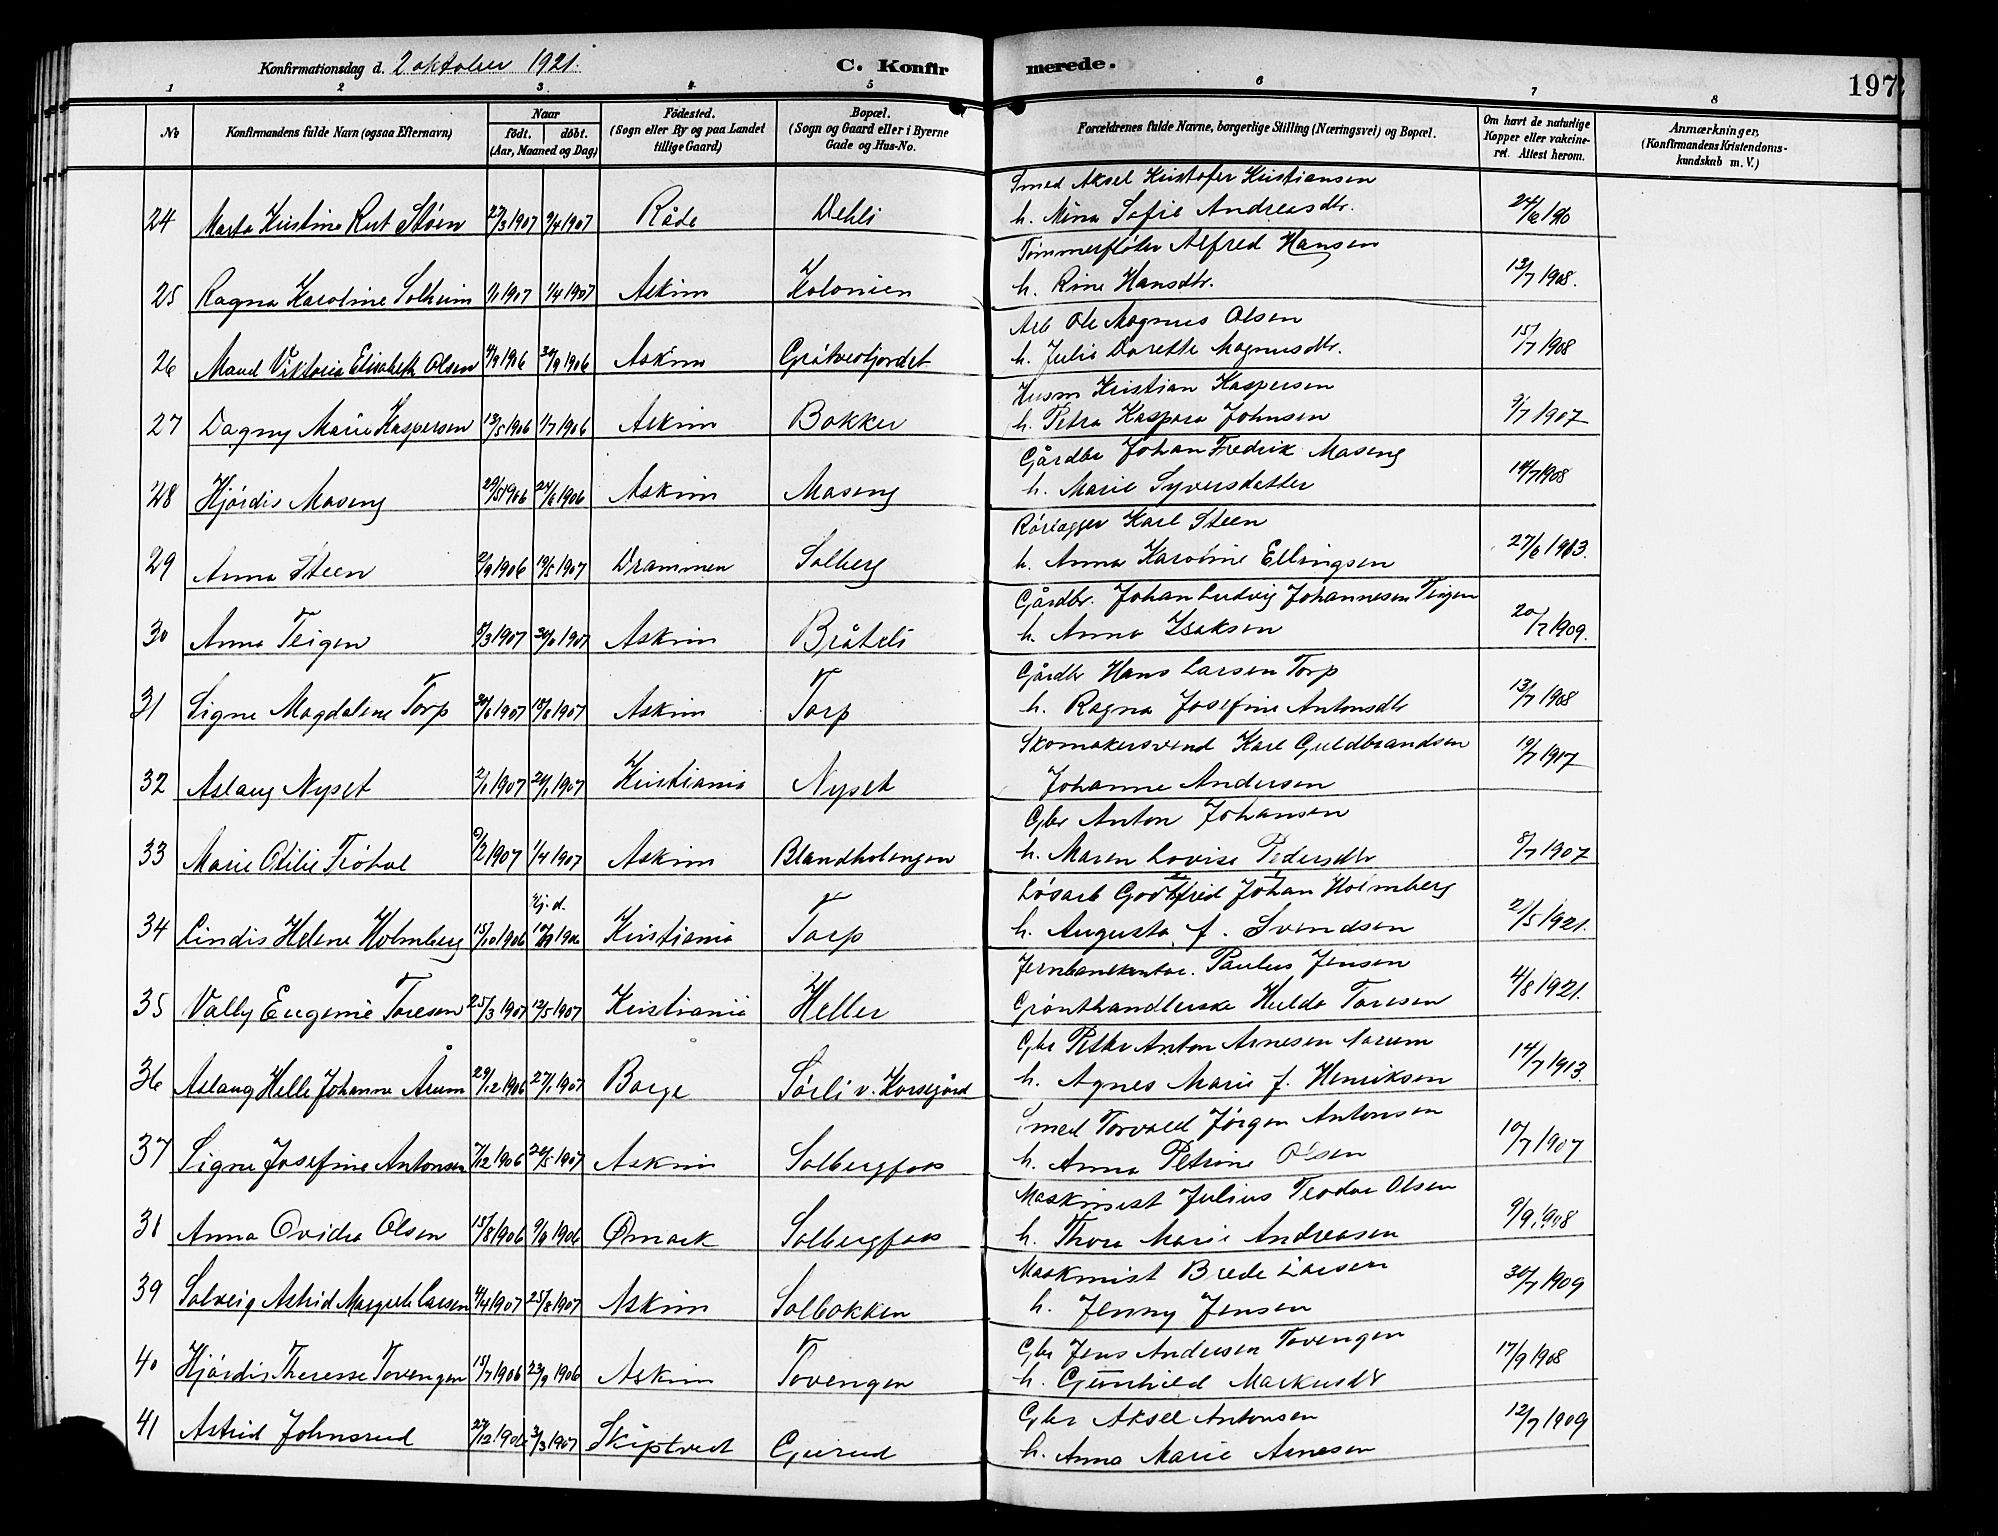 Konfirmationsdag d. 2 oktober 1921. C. Konfirmerede. 197
1 2 3. 4. 5 6 7 8
No Konfirmandens fulde Navn (ogsaa Efternavn) Naar født. døbt. (Aar, Maaned og Dag) Fødested. (Sogn eller By og paa Landet tillige Gaard) Bopæl. (Sogn og Gaard eller i Byerne Gade og Hus-No. Forældrenes fulde Navne, borgerlige Stilling (Næringsvei) og Bopæl. Om havt de naturlige Kopper eller vakcineret. Attest herom. Anmærkninger, (Konfirmandens Kristendomskundskab m. V.)
Smed Aksel Kristofer Kristiansen
24 Marta Kristine Rut Støen 27/3 1907 9/4 1907 Råde Dehli h. Mina Sofie Andreasdtr. 24/6 190
Tømmerfløter Alfred Hansen
25 Ragna Karoline Solheim 1/1 1907 1/4 1907 Askim Kolonien h. Rine Hansdtr. 13/7 1908.
Arb Ole Magnus Olsen
26 Maud Viktoria Elisabeth Olsen 4/9 1906 30/9 1906 Askim Grøtvedtjordet h. Julie Dorette Magnusdtr. 15/7 1908
Husm Kristian Kaspersen
27 Dagny Marie Kaspersen 13/5 1906 1/7 1906 Askim Bakker h. Petra Kaspara Johnsen 9/7 1907
Gårdbr Johan Fredrik Maseng
28 Hjørdis Maseng 29/5 1906 24/6 1906 Askim Maseng h. Marie Syversdatter 14/7 1908
Rørlægger Karl Steen
29 Anna Steen 2/9 1906 19/5 1907 Drammen Solberg h. Anna Karoline Ellingsen 27/6 1913.
Gårdbr. Johan Ludvig Johannesen Teigen
30 Anna Teigen 8/3 1907 30/6 1907 Askim Bråteli h. Anna Isaksen 20/7 1909.
Gårdbr Hans Larsen Torp
31 Signe Magdalene Torp 30/6 1907 18/8 1907 Askim Torp h. Ragna Josefine Antonsdtr 13/7 1908
Skomakersvend Karl Guldbrandsen
32 Aslaug Nyset 2/1 1907 20/1 1907 Kristiania Nyset Johanne Andersen 19/7 1917
Gbr Anton Johansen
33 Marie Otilie Trøbol 9/2 1907 1/4 1907 Askim Blandholengen h. Maren Lovise Pedersdtr 8/7 1907
Hj. d. Løsarb Godtfred Johan Holmberg
34 Lindis Helene Holmberg 15/10 1906 Kristiania Torp h. Augusta f. Svendsen 2/5 1921.
Jernbanekontor. Paulus Jensen
35 Vally Eugenie Toresen 25/3 1907 12/5 1907 Kristiania Heller Grønthandlerske Hulda Toresen 4/8 1921.
Gbr Petter Anton Arnesen Aarum
36 Aslaug Helle Johanne Årum 29/12 1906 27/1 1907 Borge Sørli v. Korsegård h. Agnes Marie f. Henriksen 14/7 1913.
Smed Torvald Jørgen Antonsen
37 Signe Josefine Antonsen 7/12 1906 20/5 1907 Askim Solbergfoss h. Anna Petrine Olsen 10/7 1907
Maskinist Julius Teodor Olsen
38 Anna Ovidia Olsen 15/8 1906 9/9 1906 Ømark Solbergfoss h. Thora Marie Andreasen 9/9 1908
Maskinist Brede Larsen
39 Solveig Astrid Margrete Larsen 4/4 1907 25/8 1907 Askim Solbakken h. Jenny Jensen 30/7 1909
Gbr Jens Andersen Tovengen
40 Hjørdis Therese Tovengen 15/7 1906 23/9 1906 Askim Tovengen h. Gunhild Markusdtr 17/9 1908
Gbr Aksel Antonsen
41 Astrid Johnsrud 27/12 1906 3/3 1907 Skiptvedt Gjerud h. Anna Marie Arnesen 12/7 1909